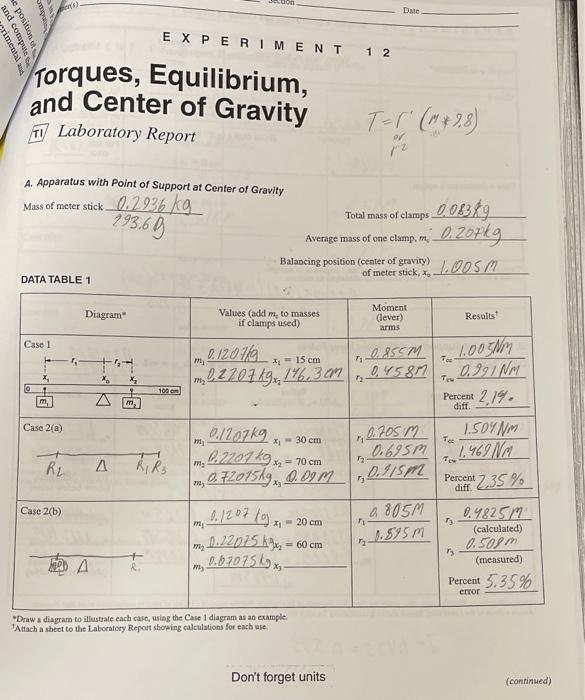 Date
EXPERIMENT 12
Torques, Equilibrium,
and Center of Gravity
T=r' (M*9.8)
or
r²
TI Laboratory Report
A. Apparatus with Point of Support at Center of Gravity
Mass of meter stick 0.2936 kg
293.6 g
Total mass of clamps 0.083kg
Average mass of one clamp, mc 0.207kg
Balancing position (center of gravity)
of meter stick, xo 1.005M
DATA TABLE 1
Diagram* Values (add mc to masses if clamps used) Moment (lever) arms Results†
Case 1
r₁ r₂
x₁ xo x₂
0 100 cm
m₁ m₂
m₁ 0.1207kg x₁ = 15 cm
m₂ 0.2207kg x₂ 146.3cm
r₁ 0.855M
r₂ 0.458M
τcc 1.005Nm
τcw 0.991Nm
Percent diff. 2.1%
Case 2(a)
R2 R1 R3
m₁ 0.1207kg x₁ = 30 cm
m₂ 0.2207kg x₂ = 70 cm
m₃ 0.72075kg x₃ 0.09M
r₁ 0.705M
r₂ 0.695M
r₃ 0.915M
τcc 1.504Nm
τcw 1.469Nm
Percent diff. 2.35%
Case 2(b)
R
m₁ 0.1207 x₁ = 20 cm
m₂ 0.22075kg x₂ = 60 cm
m₃ 0.67075kg x₃
r₁ 0.805M
r₂ 0.595M
r₃ 0.4825M
(calculated)
r₃ 0.508M
(measured)
Percent error 5.35%
*Draw a diagram to illustrate each case, using the Case 1 diagram as an example.
†Attach a sheet to the Laboratory Report showing calculations for each use.
Don't forget units
(continued)